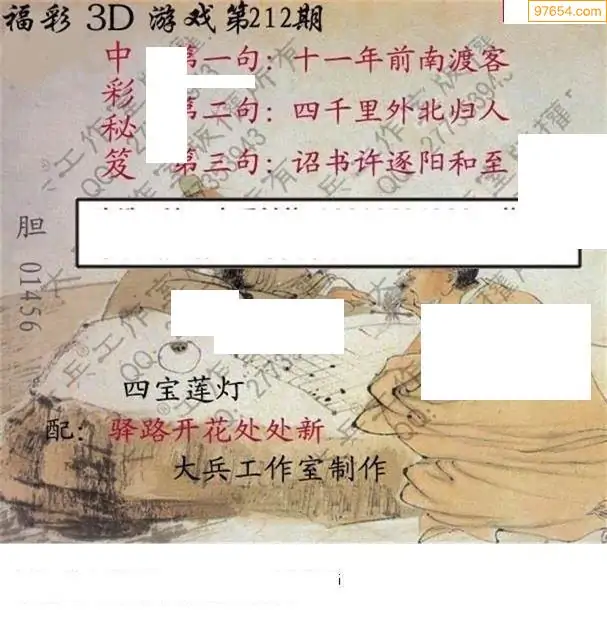 97654.com
福彩 3D 游戏 第212期
中彩秘笈
第一句：十一年前南渡客
第二句：四千里外北归人
第三句：诏书许逐阳和至
胆 01456
四宝莲灯
配：驿路开花处处新
大兵工作室制作
i